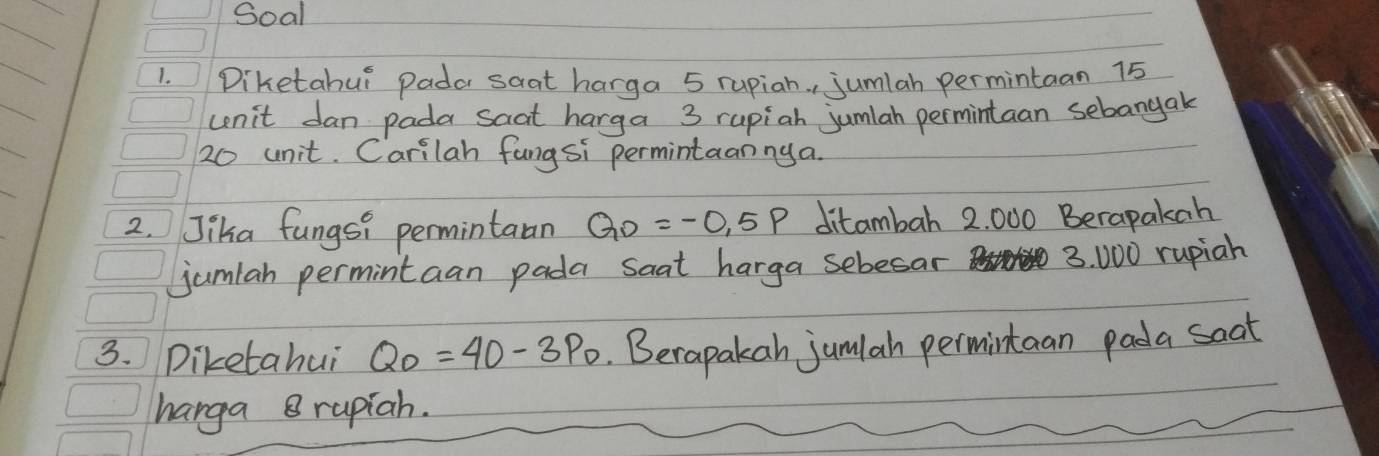 Soal
1. Diketahui pada saat harga 5 rupiah, jumlah permintaan 15
unit dan pada saat harga 3 rupiah jumlah permintaan sebanyak
20 unit. Carilah fungsi permintaannya.
2. Jika fungsi permintaan QD = -0,5P ditambah 2.000 Berapakah
jumlah permintaan pada saat harga sebesar 3.000 rupiah
3. Diketahui QD = 40 - 3PD. Berapakah jumlah permintaan pada saat
harga 8 rupiah.